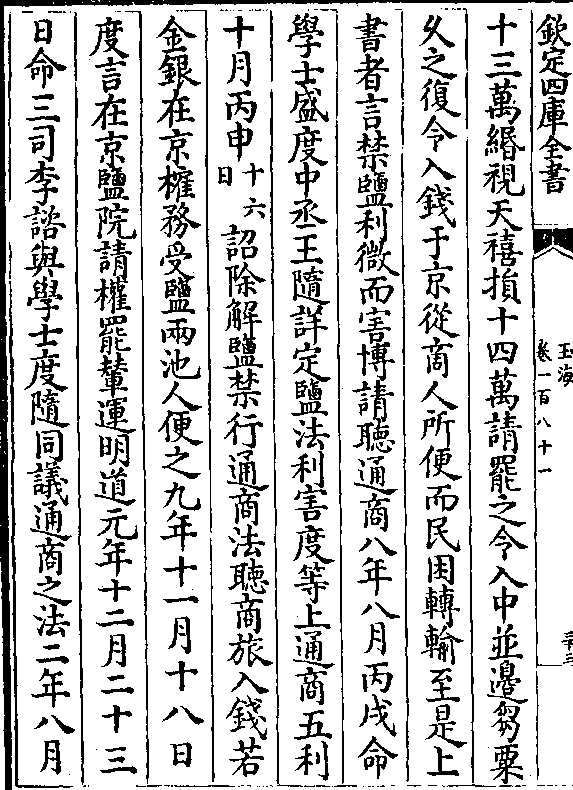 欽定四庫全書
玉海
卷一百八十一
十三萬緡視天禧損十四萬請罷之令入中並邊芻粟
乆之復令入錢于京從商人所便而民困轉輸至是上
書者言禁鹽利微而害博請聽通商八年八月丙戌命
學士盛度中丞王隨詳定鹽法利害度等上通商五利
十月丙申十六日詔除解鹽禁行通商法聽商旅入錢若
金銀在京榷務受鹽兩池人便之九年十一月十八日
度言在京鹽院請權罷輦運明道元年十二月二十三
日命三司李諮與學士度隨同議通商之法二年八月